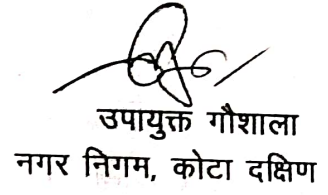 उपायुक्त गौशाला
नगर निगम, कोटा दक्षिण